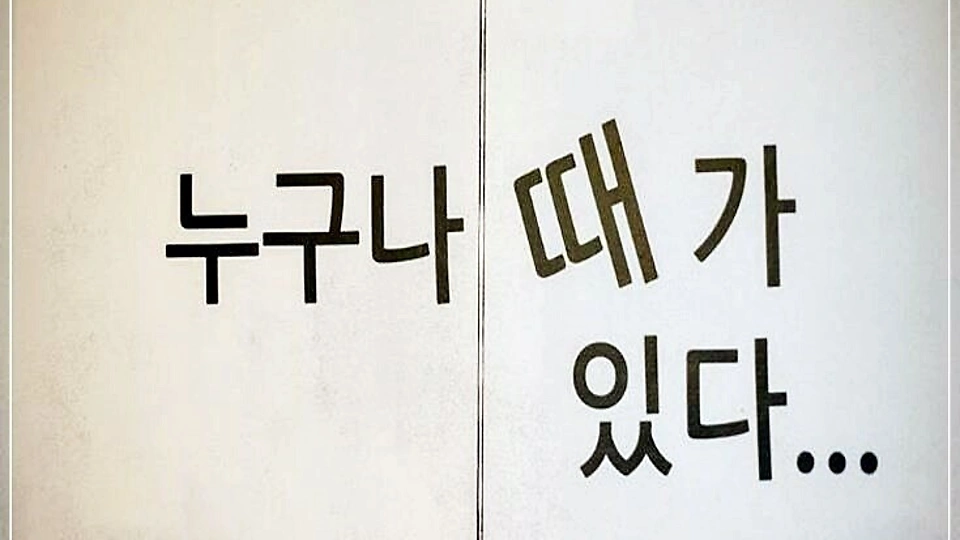 누구나 때가
있다...